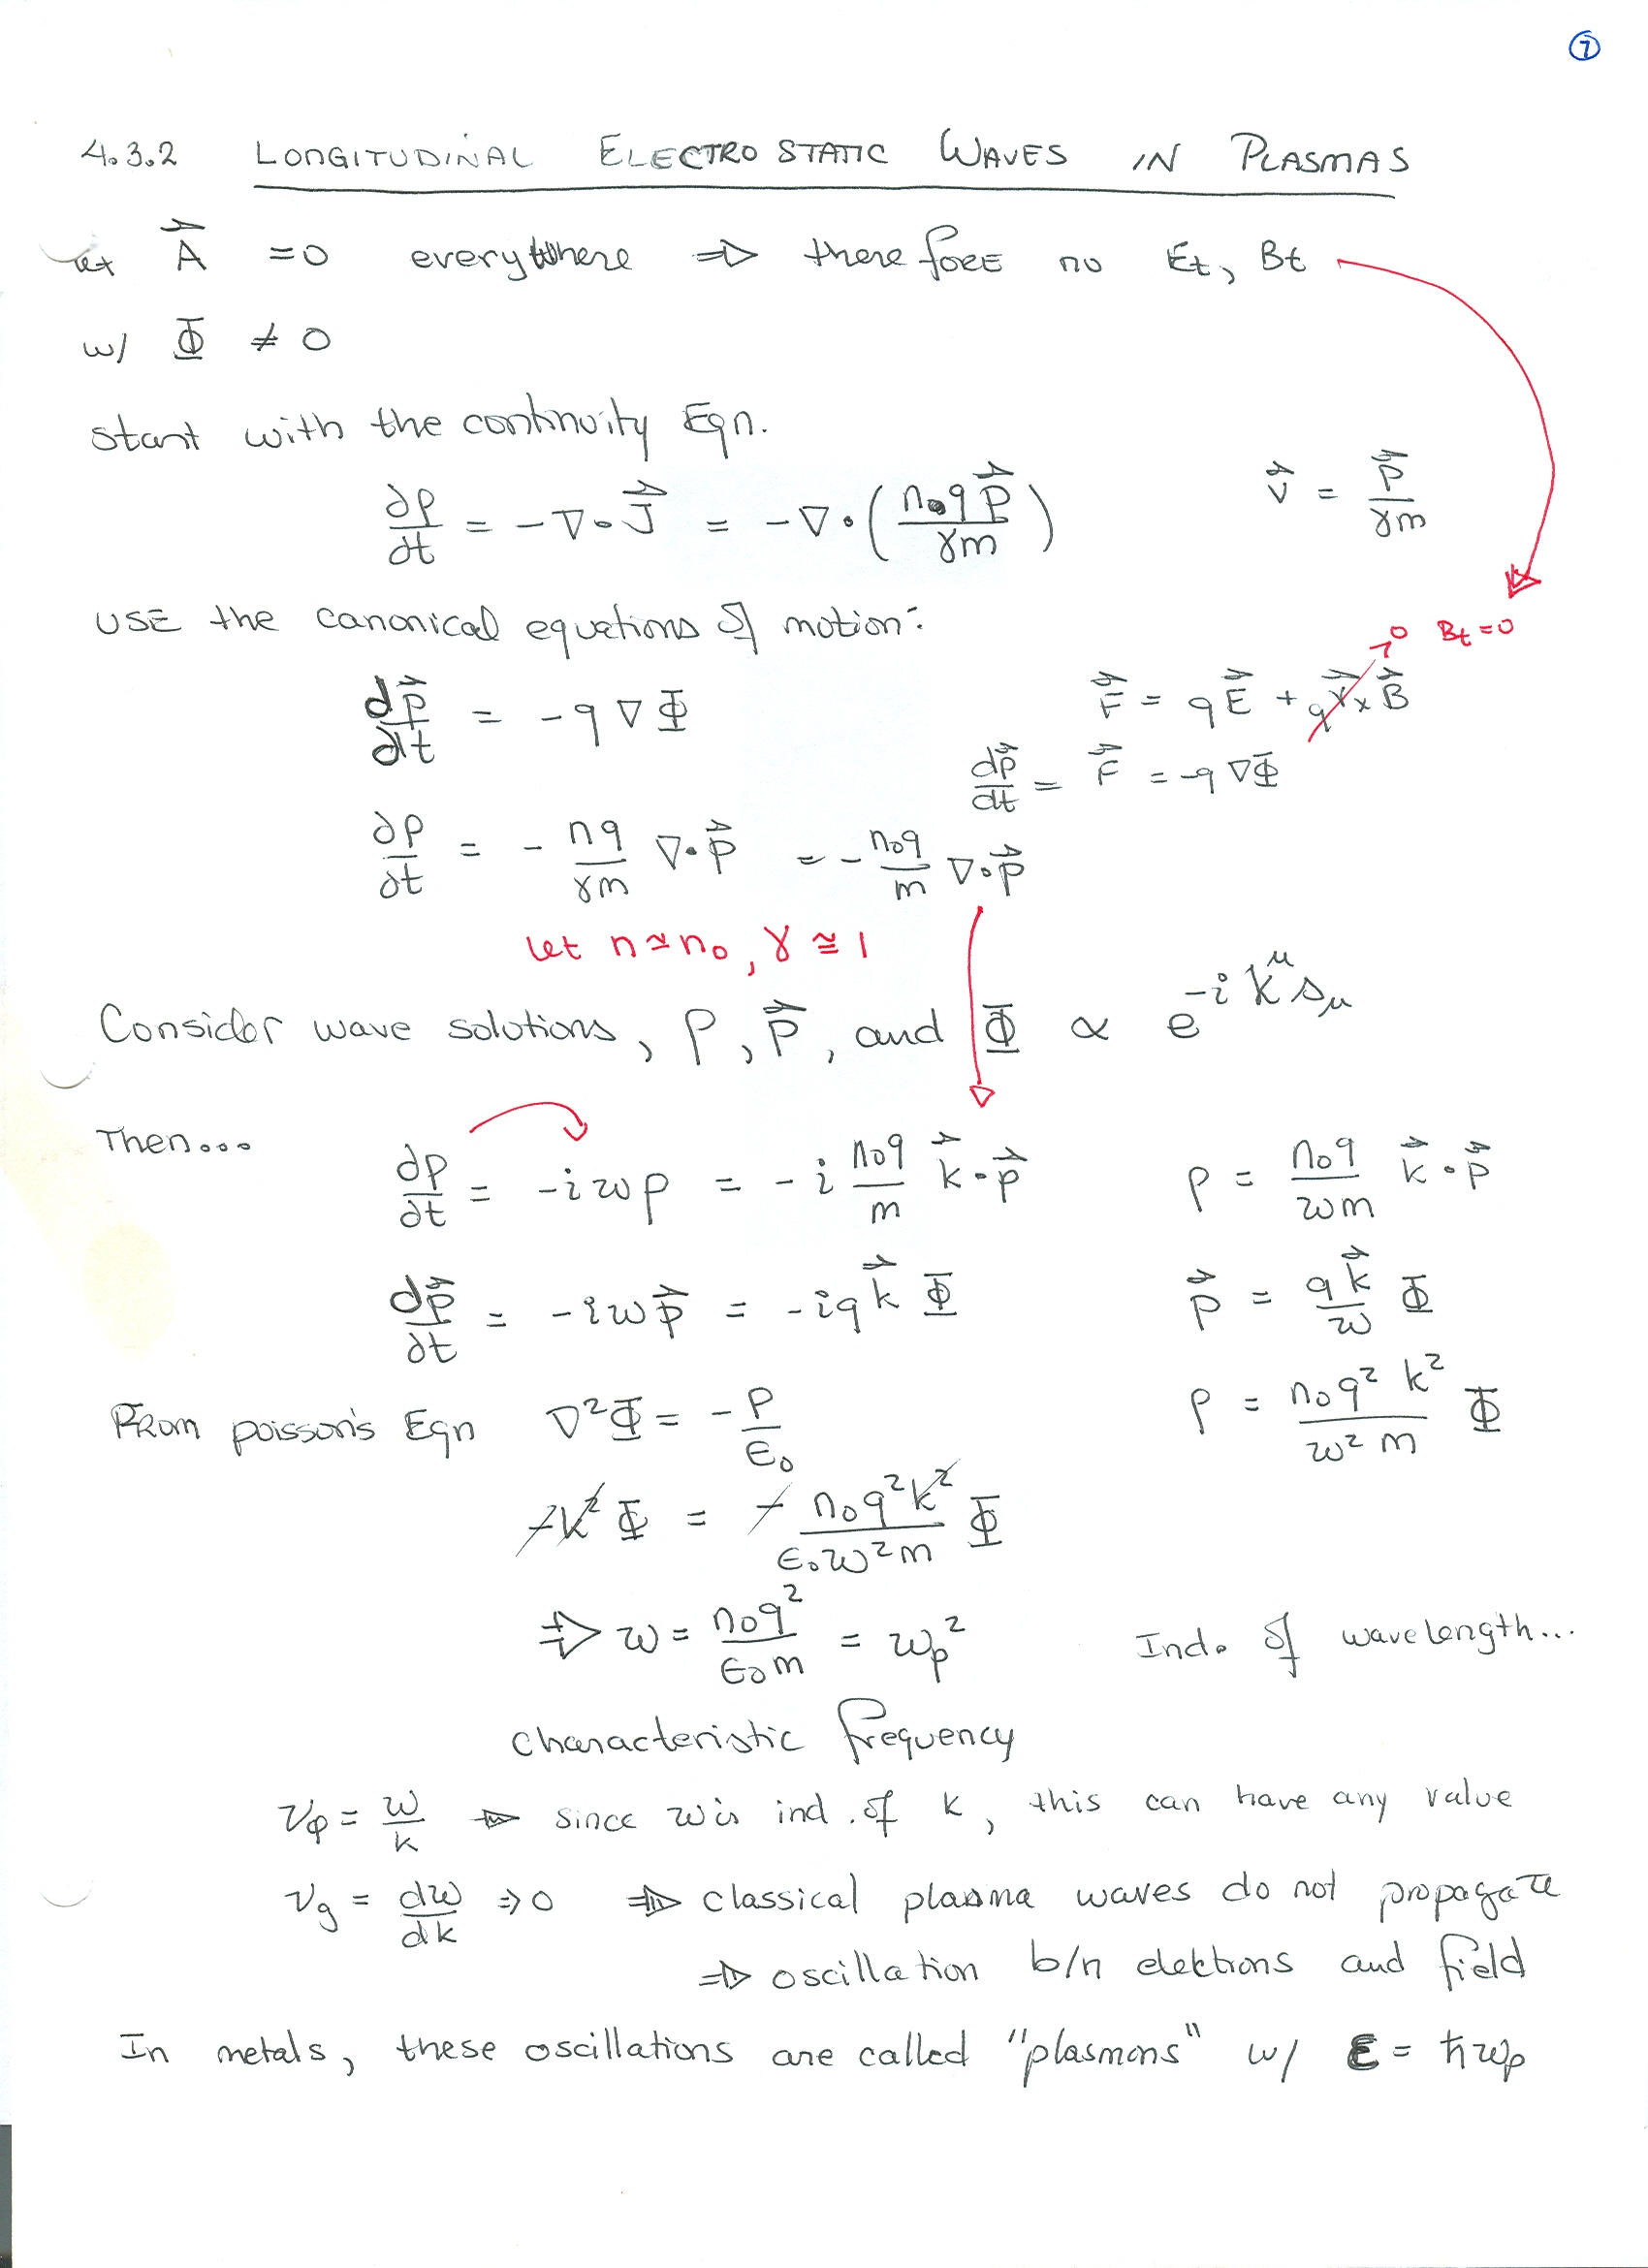 ⑦
4.3.2 LONGITUDINAL ELECTROSTATIC WAVES IN PLASMAS
let A⃗ = 0 everywhere ⇒ therefore no Et, Bt
w/ Φ ≠ 0
start with the continuity Eqn.
∂ρ/∂t = -∇·J⃗ = -∇·(n₀qp⃗/γm) v⃗ = p⃗/γm
USE the canonical equations of motion:
dp⃗/dt = -q∇Φ F⃗ = qE⃗ + qv⃗×B⃗ →0 Bt=0
dp⃗/dt = F⃗ = -q∇Φ
∂ρ/∂t = -nq/γm ∇·p⃗ = -n₀q/m ∇·p⃗
let n≃n₀, γ≅1
Consider wave solutions, ρ, p⃗, and Φ ∝ e^{-ik^μ s_μ}
Then... ∂ρ/∂t = -iωρ = -i n₀q/m k⃗·p⃗ ρ = n₀q/ωm k⃗·p⃗
dp⃗/dt = -iωp⃗ = -iqk⃗Φ p⃗ = qk⃗/ω Φ
From poisson's Eqn ∇²Φ = -ρ/ε₀ ρ = n₀q²k²/ω²m Φ
-k²Φ = -n₀q²k²/ε₀ω²m Φ
⇒ ω = n₀q²/ε₀m = ωp² Ind. of wavelength...
characteristic frequency
vφ = ω/k ⇒ since ω is ind. of k, this can have any value
vg = dω/dk ⇒ 0 ⇒ classical plasma waves do not propagate
⇒ oscillation b/n elektrons and field
In metals, these oscillations are called "plasmons" w/ E = ħωp